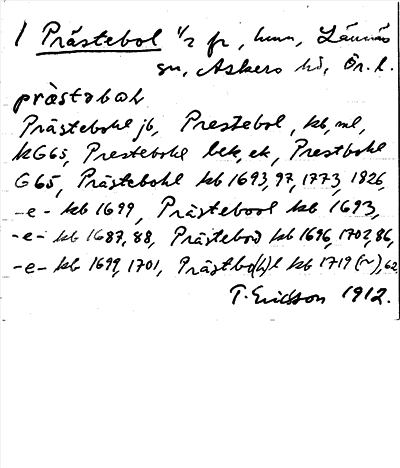 1 Prästebol 1/2 fr, hmn, Lännäs
sn, Askers hd, Ör. l.
prästəbωl
Prästebohl jb, Prestebol, kb, ml,
kG65, Prestebohl lek, ek, Prestbohl
G65, Prästebohl kb 1693, 97, 1773, 1826,
-e- kb 1699, Prästebool kb 1693,
-e- kb 1687, 88, Prästebod kb 1696, 1702, 86,
-e- kb 1699, 1701, Prästbo(h)l kb 1719 (~), 62,
T. Ericsson 1912.